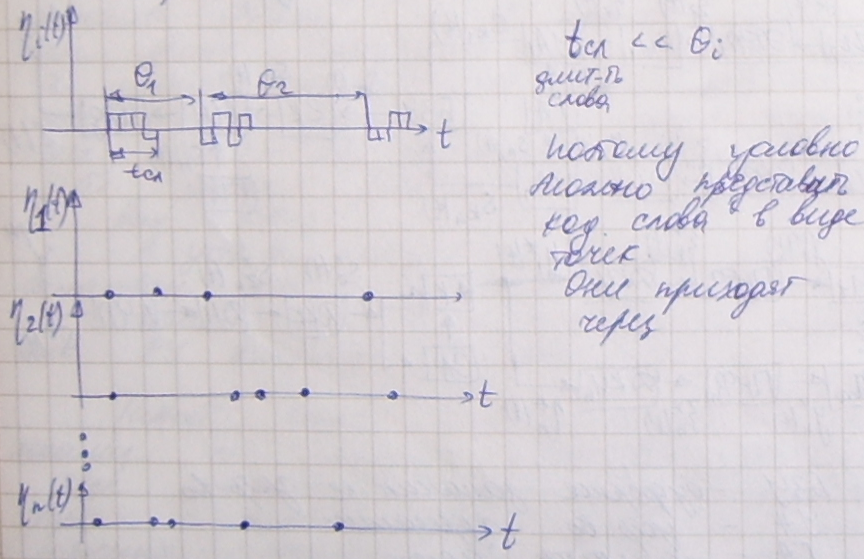 ηᵢ(t)
θ₁ θ₂
t
tсл
tсл << θᵢ
длит-ть
слова
поэтому условно
можно представить
код. слова в виде
точек.
Они приходят
через
η₁(t)
η₂(t)
t
ηₙ(t)
t